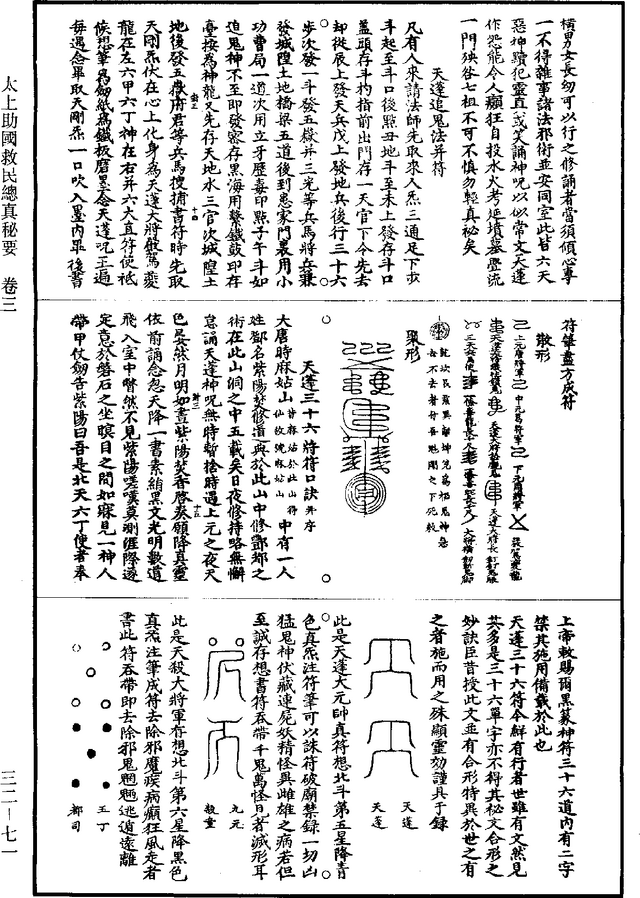 橫男女長幼可以行之修誦者當須傾心專
一不得雜事諸法邪術並安同室此皆六天
惡神瀆犯靈真或笑誦神呪以似常文天蓬
作怒能令人癲狂自投水火考延墳墓疊流
一門殃谷七祖不可不慎勿輕真秘矣
天蓬追鬼法并符
凡有人來請法師先取來人炁三通足下步
斗起至斗口後點丑地斗至未上發存斗口
蓋頭存斗杓指前出門存一天官下令先去
却從辰上發天兵戊上發地兵後行三十六
步次發一斗發五嶽并三光等兵馬將兵衆
發城隍土地橋梁五道後到患家門裏用小
功曹局一道次用立牙歷毒印點子午斗如
追鬼神不至即發密存黑海用擊鐵鼓印存
臺按為神龍又先存天地水三官次城隍土
地後發五嶽府君等兵馬搜捕書符時先取
天剛炁伏在心上化身為天蓬大將般萬變
龍在左六甲六丁神在右并六大直符使祗
候想筆為劒紙為鐵板磨墨念天蓬呪五遍
每遇念畢取天剛炁一口吹入墨內畢後書
太上助國救民總真秘要　卷三
三二—七一
符篆盡方成符
散形
上元唐將軍
中元葛將軍
下元周將軍
聚形
天蓬三十六將符口訣并序
大唐時麻姑山中有一人
姓鄧名紫陽焚修道與於此山中修鄷都之
術在此山洞之中五載矣日夜修持略無懈
怠誦天蓬神呪無時暫捨時遇上元之夜天
色晏然月明如晝紫陽焚香啓奏願降真靈
依前誦念忽天降一書素絹黑文光明數道
飛入室中瞥然不見紫陽嗟嘆莫測涯際遂
定意於磐石之坐瞑目之間如寐見一神人
帶甲仗劒告紫陽曰吾是北天六丁使者奉
上帝敕賜爾黑篆神符三十六道內有二字
禁其施用備載於此也
天蓬三十六符今鮮有行者世雖有文然見
其多是三十六單字亦不得其秘文合形之
妙訣臣昔授此文並有合形特異於世之有
之者施而用之殊顯靈効謹具于錄
天蓬
天蓬
此是天蓬大元帥真符想北斗第五星降青
色真炁注符筆可以誅符破廟禁錄一切山
猛鬼神伏藏連屍妖精怪異雌雄之病若但
至誠存想書符吞帶千鬼萬怪見者滅形耳
九元
殺童
此是天殺大將軍存想北斗第六星降黑色
真炁注筆成符去除邪魔疾病癲狂風走者
書此符吞帶即去除邪鬼魍魎逃遁遠離
五丁
都司